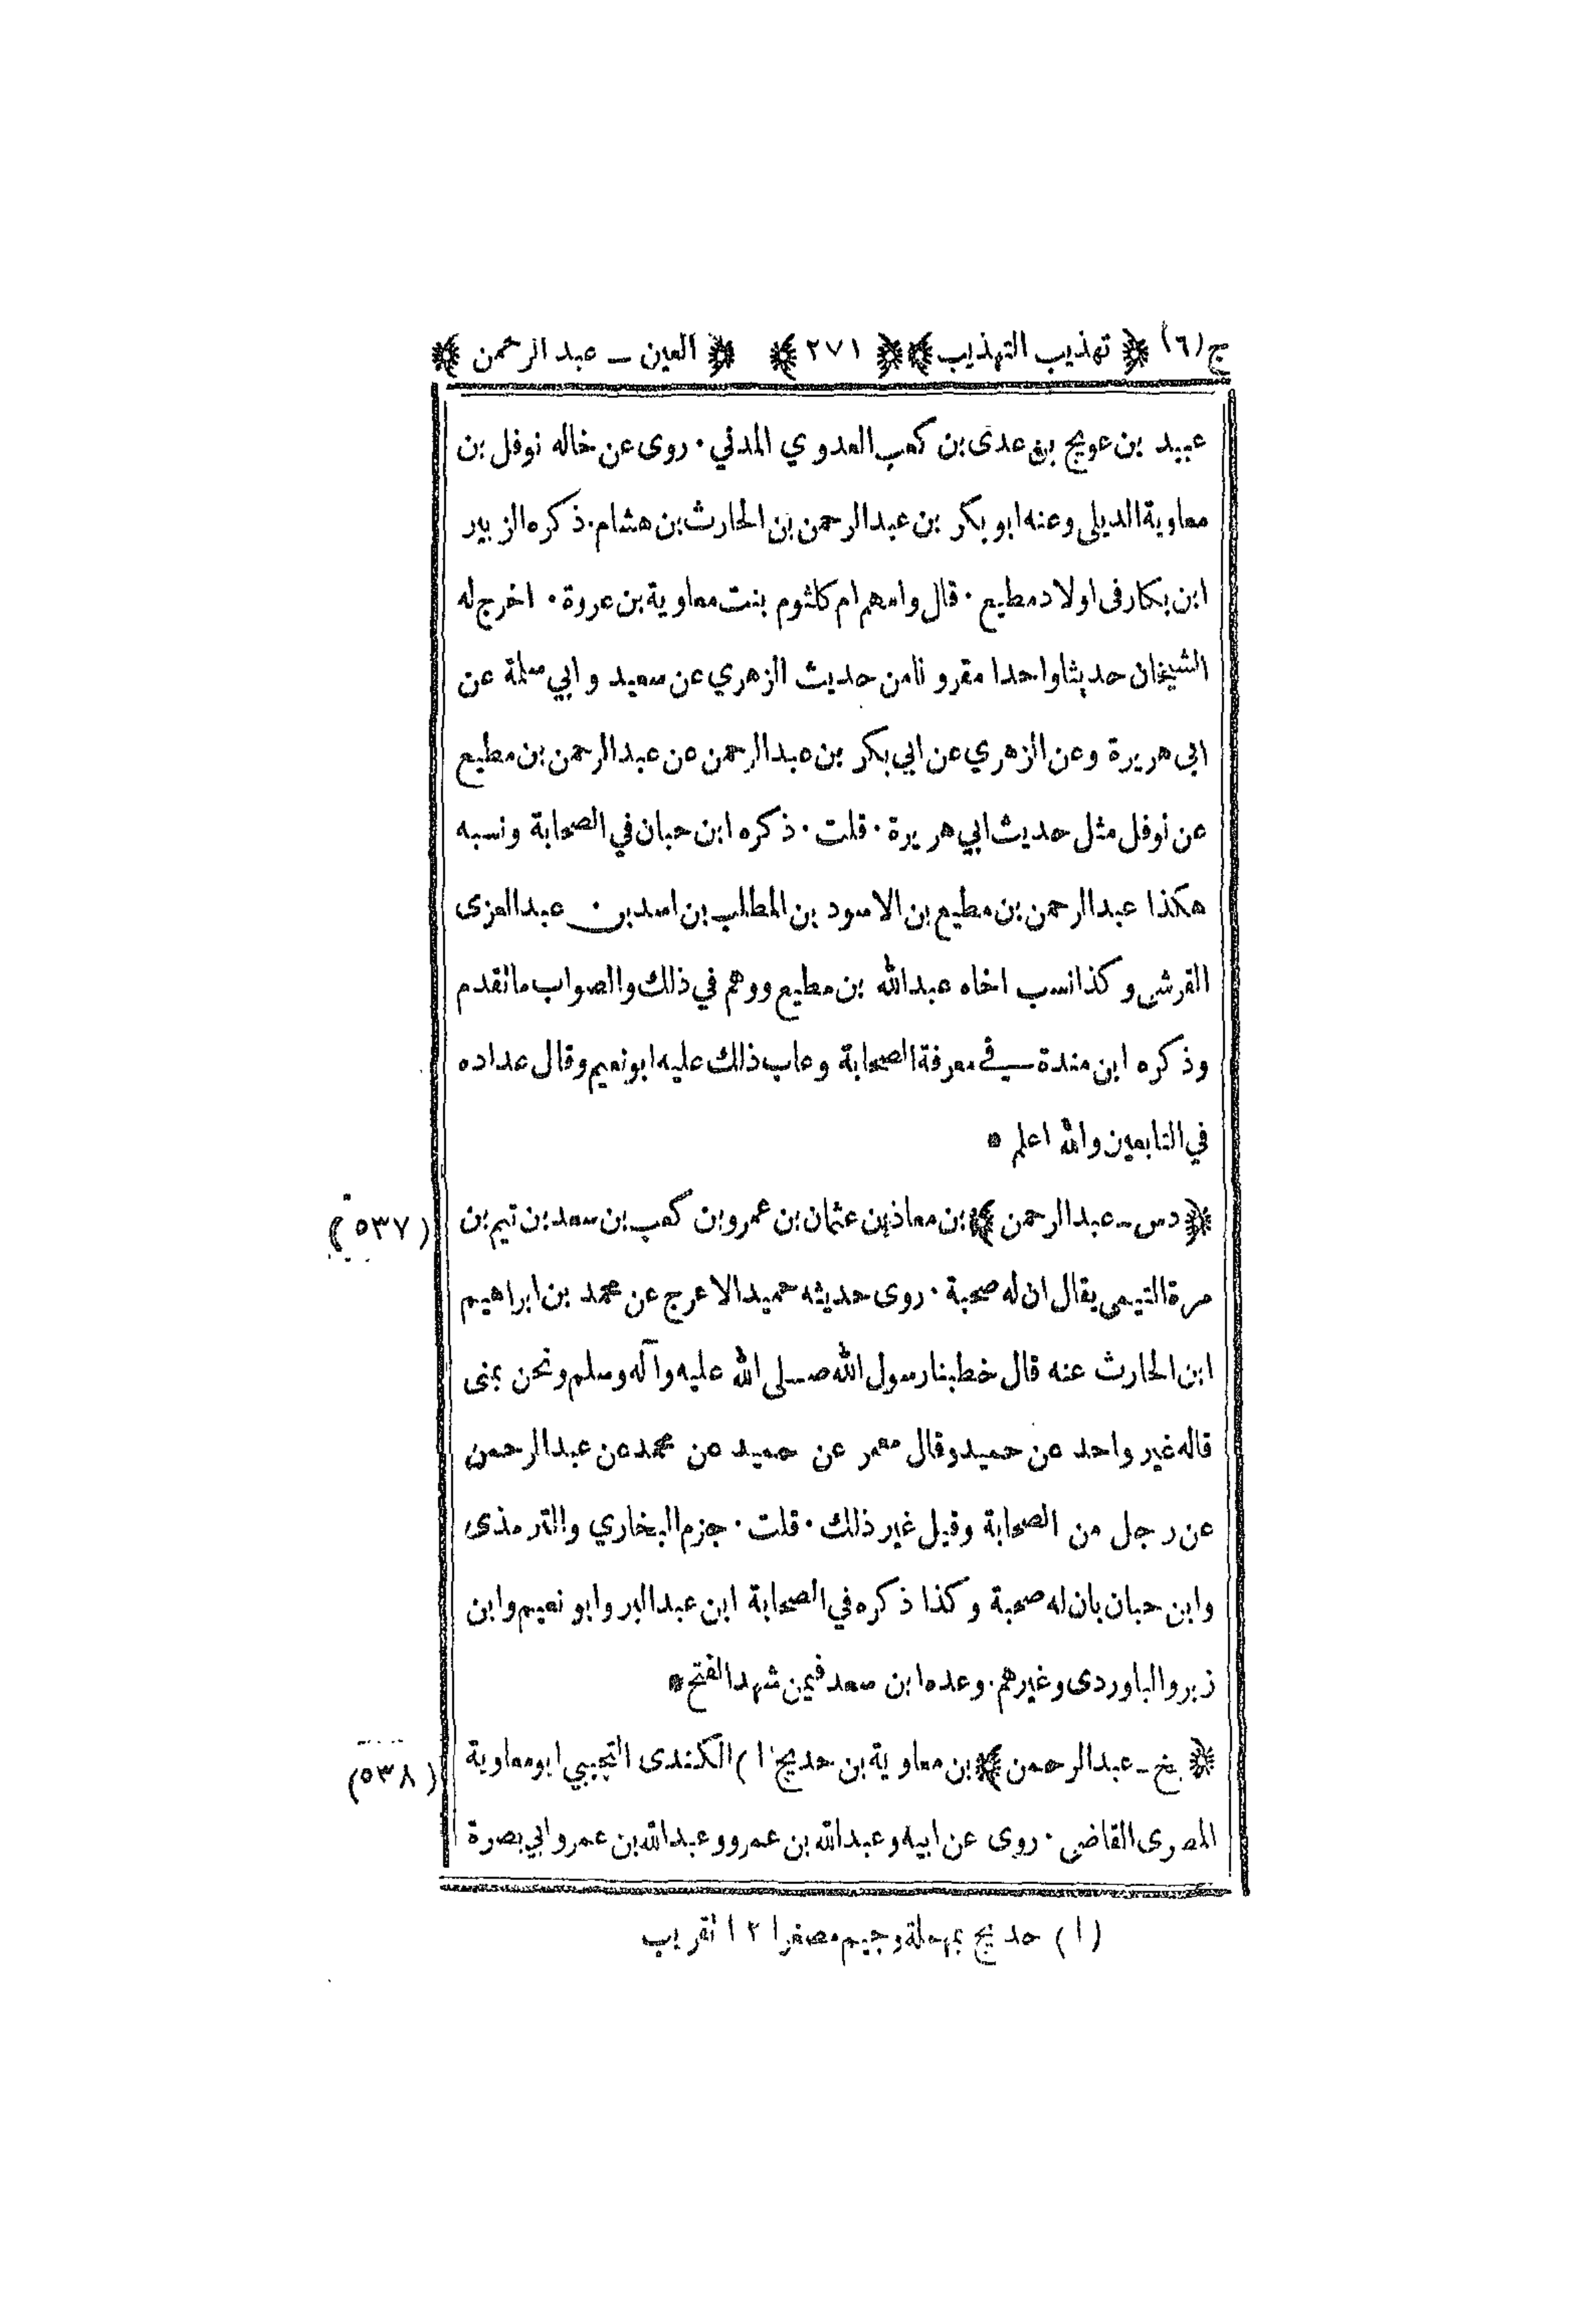 ج(٦) ﴿ تهذيب التهذيب ﴾﴿ ٢٧١ ﴾ ﴿ العين ـ عبد الرحمن ﴾
عبيد بن عويج بن عدى بن كعب العدوي المدني ٠ روى عن خاله نوفل بن
معاوية الديلى وعنه ابو بكر بن عبدالرحمن بن الحارث بن هشام ٠ ذكره الزبير
ابن بكار فى اولاد مطيع ٠ قال وامهم ام كلثوم بنت معاوية بن عروة ٠ اخرج له
الشيخان حديثا واحدا مقرونا من حديث الزهري عن سعيد وابي سلمة عن
ابى هريرة وعن الزهري عن ابي بكر بن عبدالرحمن عن عبدالرحمن بن مطيع
عن نوفل مثل حديث ابي هريرة ٠ قلت ٠ ذكره ابن حبان في الصحابة ونسبه
هكذا عبدالرحمن بن مطيع بن الاسود بن المطلب بن اسد بن عبدالعزى
القرشى وكذا نسب اخاه عبدالله بن مطيع ووهم في ذلك والصواب ما تقدم
وذكره ابن مندة في معرفة الصحابة وعاب ذلك عليه ابونعيم وقال عداده
في التابعين والله اعلم *
﴿ دس ـ عبدالرحمن ﴾ بن معاذ بن عثمان بن عمرو بن كعب بن سعد بن تيم بن (٥٣٧)
مرة التيمى يقال ان له صحبة ٠ روى حديثه حميد الاعرج عن محمد بن ابراهيم
ابن الحارث عنه قال خطبنا رسول الله صلى الله عليه وآله وسلم ونحن بمنى
قاله غير واحد عن حميد وقال معمر عن حميد عن محمد عن عبدالرحمن
عن رجل من الصحابة وقيل غير ذلك ٠ قلت ٠ جزم البخاري والترمذى
وابن حبان بان له صحبة وكذا ذكره في الصحابة ابن عبدالبر وابو نعيم وابن
زبر والباوردى وغيرهم ٠ وعده ابن سعد فيمن شهد الفتح *
﴿ بخ ـ عبدالرحمن ﴾ بن معاوية بن حديج (١) الكندى التجيبي ابو معاوية (٥٣٨)
المصرى القاضى ٠ روى عن ابيه وعبدالله بن عمرو وعبدالله بن عمر وابي بصرة
(١) حديج بمهملة وجيم مصغرا ١٢ تقريب